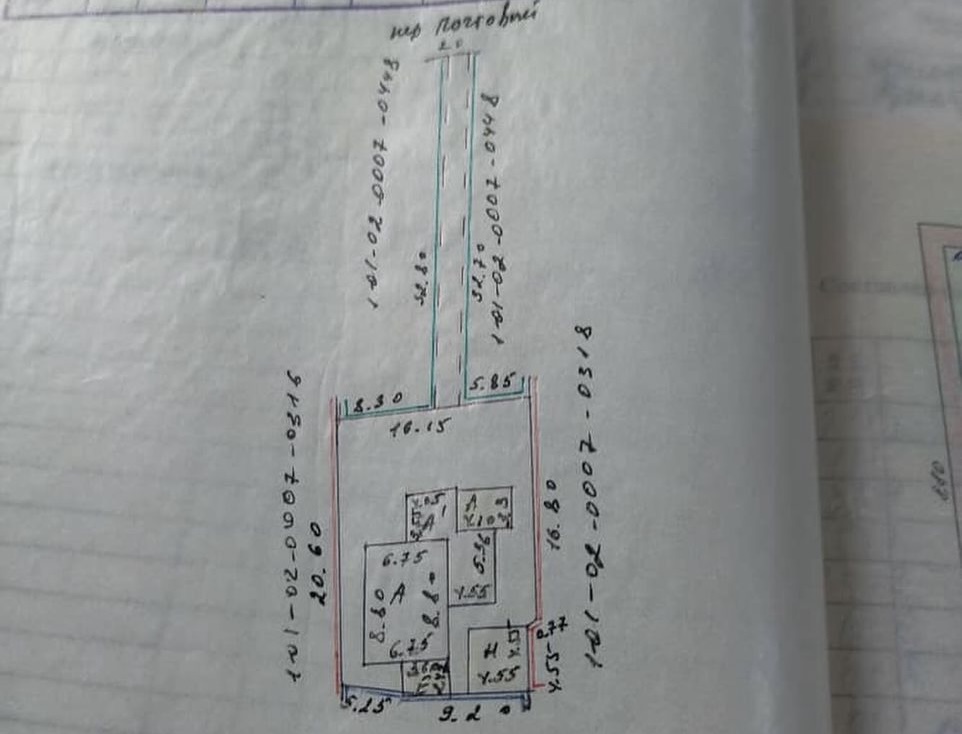 пер Почтовый
2.0
1-01-02-0007-0448
1-01-02-0007-0448
52.80
52.70
5.85
8.30
16.15
1-01-02-0007-0318
1-01-02-0007-0316
20.60
16.80
А
6.75
5.36
8.80
А
8.80
4.55
6.75
0.77
4.55
4.55
4.55
5.25
9.20